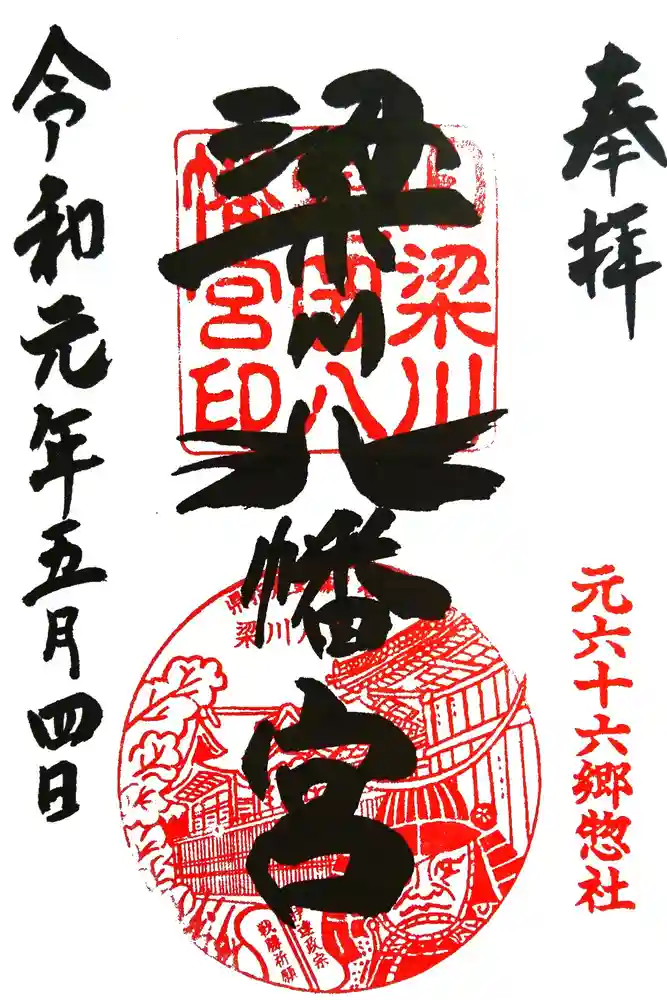 奉拝
元六十六郷惣社
梁川八幡宮
梁川
八
幡宮印
梁川八
伊達政宗
戦勝祈願
令和元年五月四日